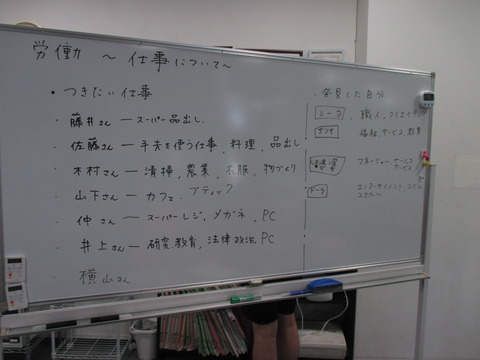 労働 ～仕事について～
・つきたい仕事
・藤井さん ― スーパー品出し
・佐藤さん ― 手夫を使う仕事, 料理, 品出し
・木村さん ― 清掃, 農業, 衣服, 物づくり
・山下さん ― カフェ, ブティック
・仲さん ― スーパーレジ, メガネ, PC
・井上さん ― 研究, 教育, 法律, 政治, PC
・横山さん
・発見した自分
職人, クリエイティブ
福祉, サービス, 教育
サービス